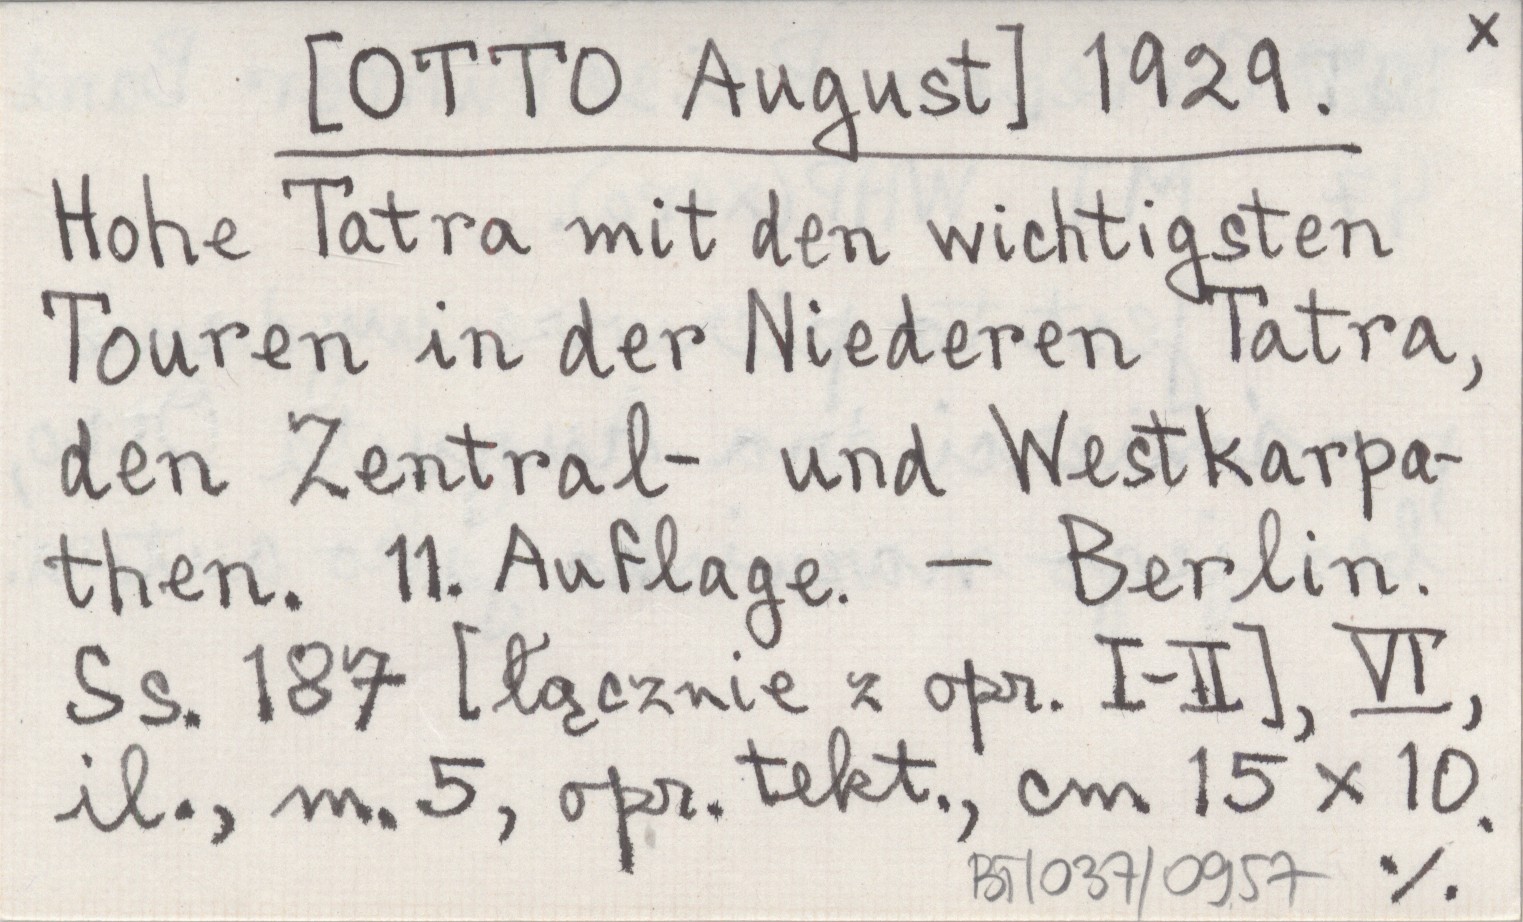 x
[OTTO August] 1929.
Hohe Tatra mit den wichtigsten
Touren in der Niederen Tatra,
den Zentral- und Westkarpa-
then. 11. Auflage. — Berlin.
Ss. 187 [łącznie z opr. I-II], VI,
il., m. 5, opr. tekt., cm 15 x 10.
BT/037/0957 ·/.